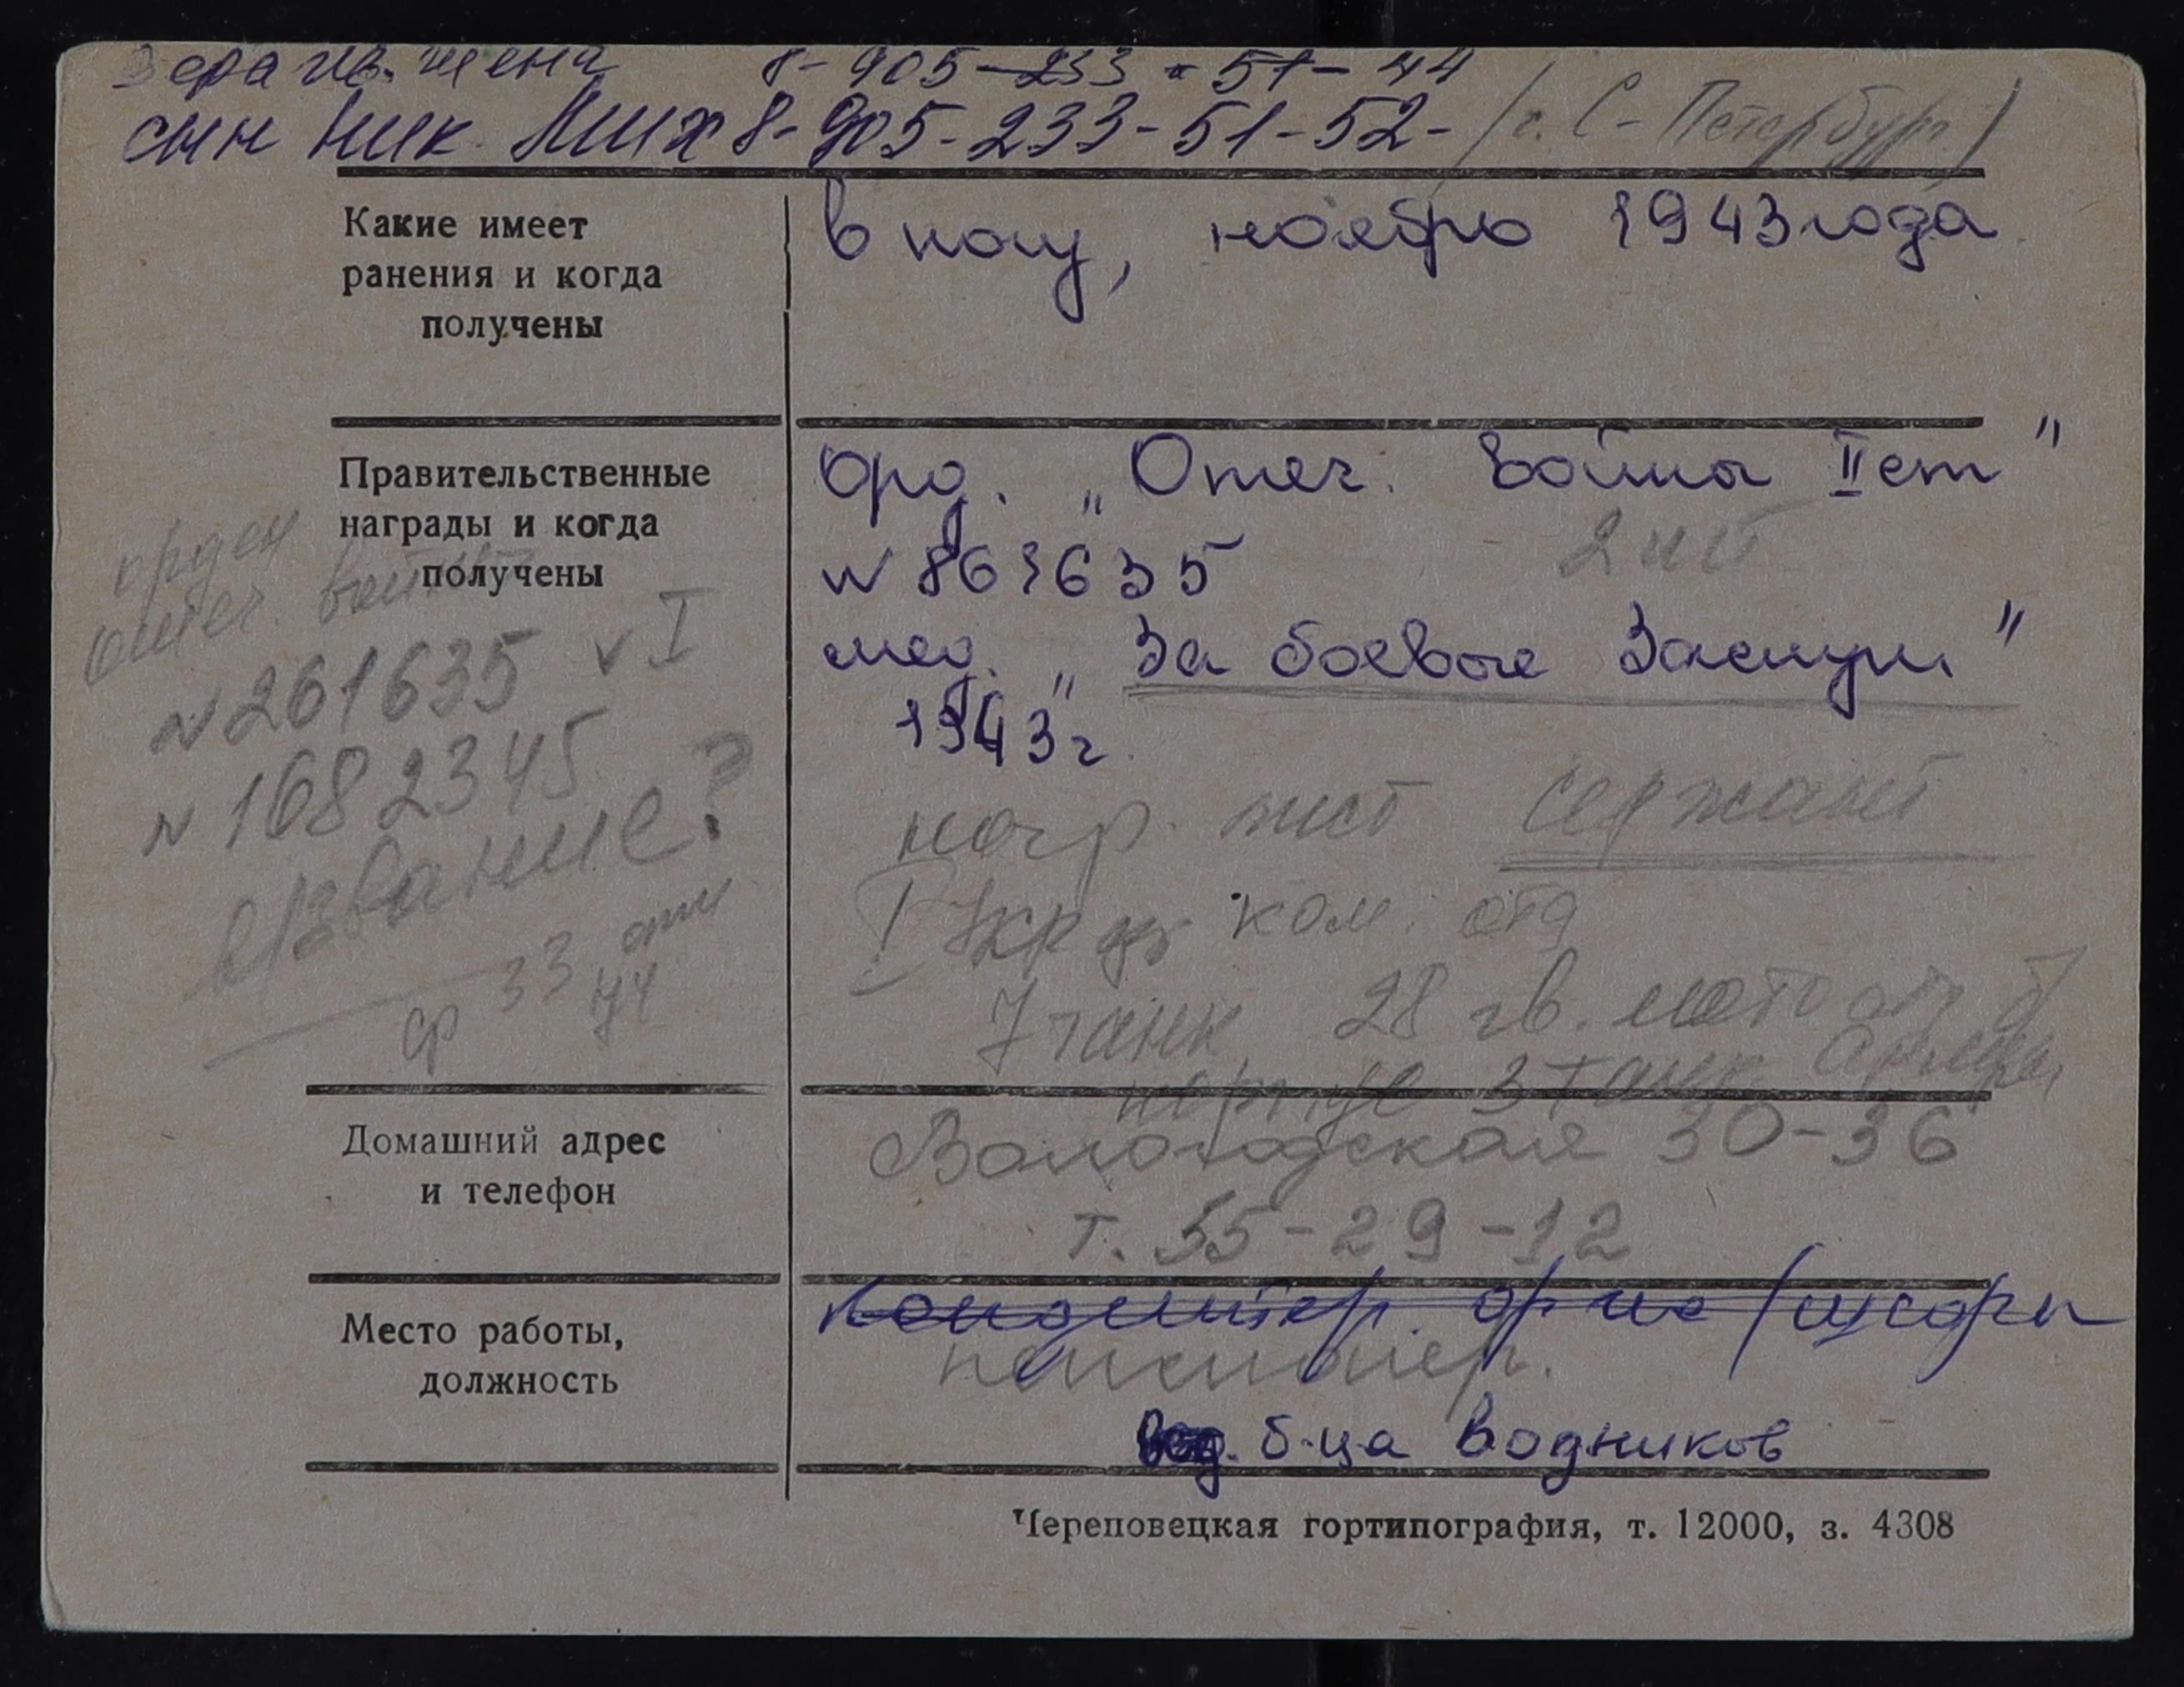 Вера Ив. жена 8-905-233-51-44
сын Ник. Мих 8-905-233-51-52- (г. С-Петербург)
Какие имеет
ранения и когда
получены
в ногу, ноябрь 1943 года
Правительственные
награды и когда
получены
Орд. „Отеч. Войны II ст"
N 861635
мед. „За боевые Заслуги"
1943 г.
орден
отеч. войны
N 261635 v I
N 1682345
звание?
ср 33
44
нагр. лист сержант
I Укр ком. отд
7 танк 28 гв. мото
корпус 3 танк. армии
Домашний адрес
и телефон
Вологодская 30-36
т. 55-29-12
Место работы,
должность
пенсионер.
б-ца Водников
Череповецкая гортипография, т. 12000, з. 4308